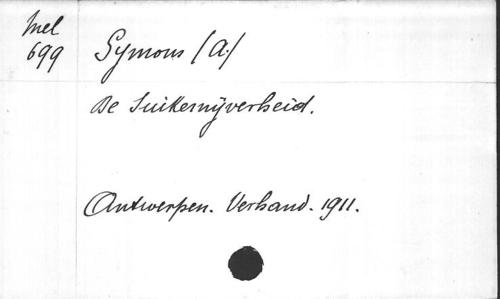 Mel
699
Symons (A.)
De Suikernijverheid.
Antwerpen. Verband. 1911.